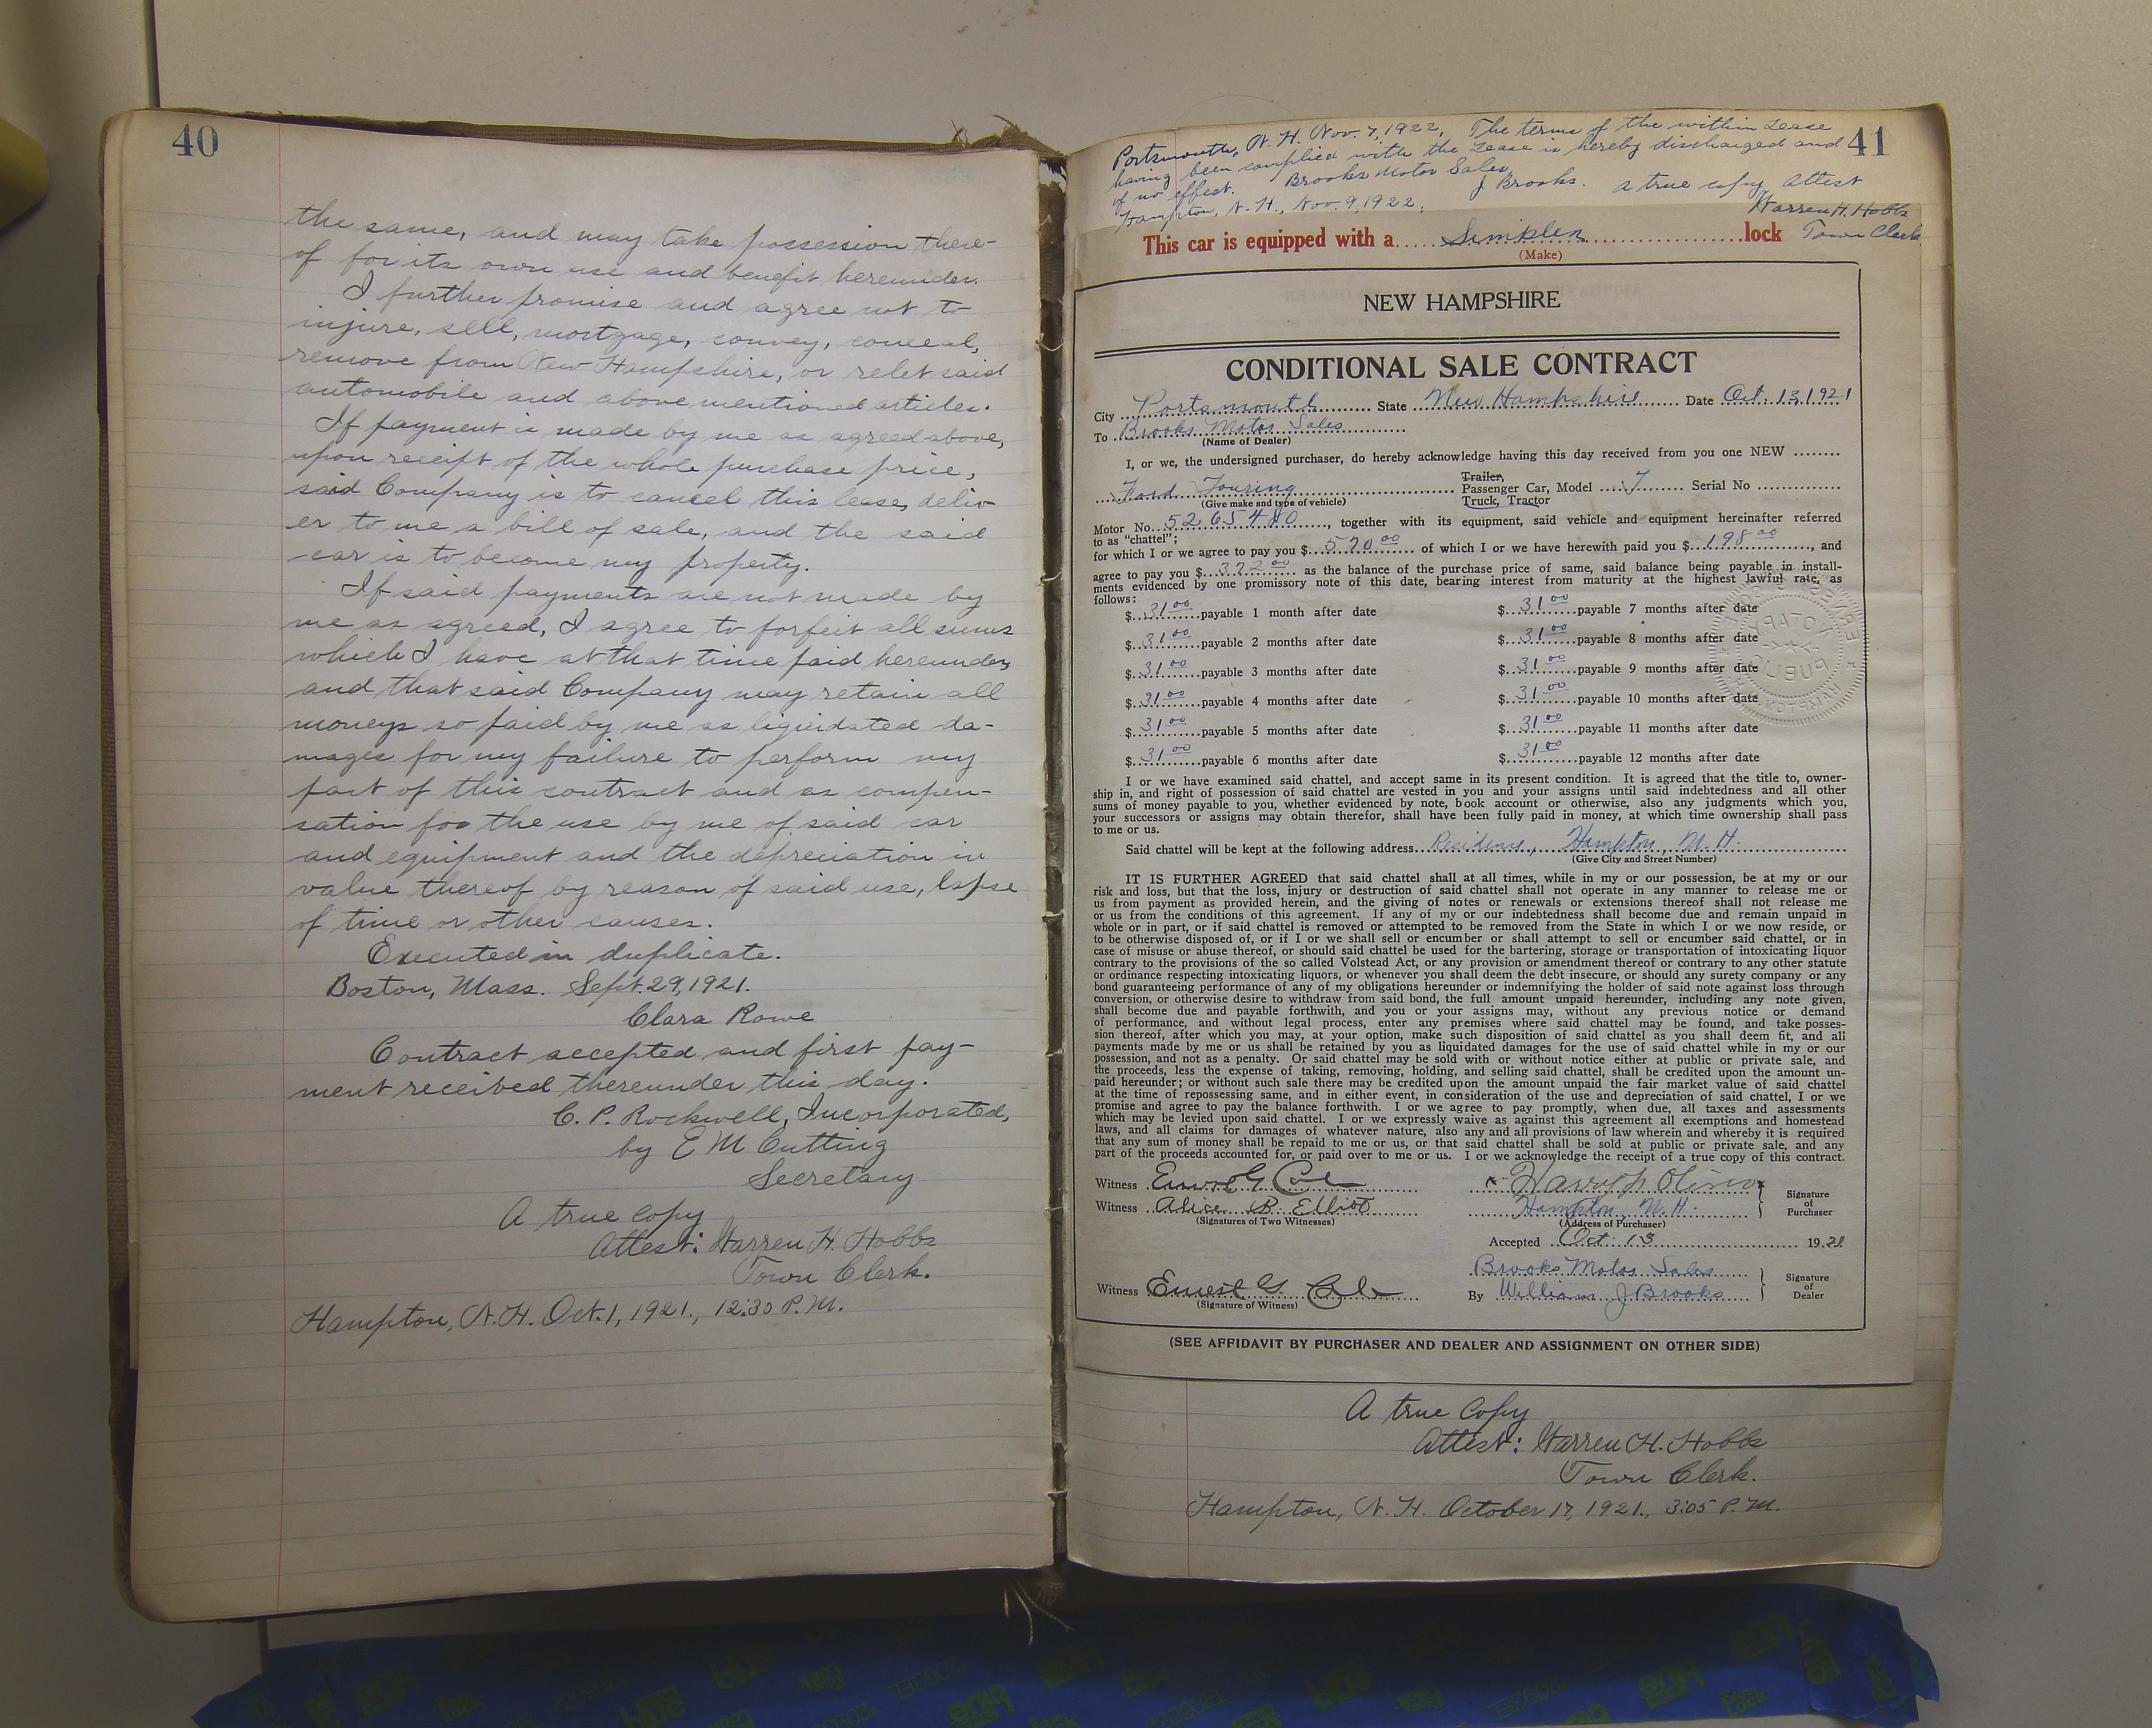 40
the same, and may take possession there-
of for its own use and benefit hereunder.
I further promise and agree not to
injure, sell, mortgage, convey, conceal,
remove from New Hampshire, or relet said
automobile and above mentioned articles.
If payment is made by me as agreed above,
upon receipt of the whole purchase price,
said Company is to cancel this lease, deliv-
er to me a bill of sale, and the said
car is to become my property.
If said payments are not made by
me as agreed, I agree to forfeit all sums
which I have at that time paid hereunder,
and that said Company may retain all
moneys so paid by me as liquidated da-
mages for my failure to perform my
part of this contract and as compen-
sation for the use by me of said car
and equipment and the depreciation in
value thereof by reason of said use, lapse
of time or other causes.
Executed in duplicate.
Boston, Mass. Sept. 29, 1921.
Clara Rowe
Contract accepted and first pay-
ment received thereunder this day.
C. P. Rockwell, Incorporated,
by E M Cutting
Secretary
A true copy
Attest: Warren H. Hobbs
Town Clerk.
Hampton, N.H. Oct. 1, 1921., 12:30 P.M.
41
Portsmouth, N. H. Nov. 7, 1922, The terms of the within Lease
having been complied with the Lease is hereby discharged and
of no effect. Brooks Motor Sales,
J Brooks. a true copy, Attest
Hampton, N. H., Nov. 9, 1922. Warren H. Hobbs
Town Clerk
This car is equipped with a..... Simplex ..........lock
(Make)
NEW HAMPSHIRE
CONDITIONAL SALE CONTRACT
City Portsmouth State New Hampshire Date Oct. 13, 1921
To Brooks Motor Sales
(Name of Dealer)
I, or we, the undersigned purchaser, do hereby acknowledge having this day received from you one NEW ........
Ford Touring Trailer, Passenger Car, Model T Serial No
(Give make and type of vehicle) Truck, Tractor
Motor No. 5265480, together with its equipment, said vehicle and equipment hereinafter referred
to as "chattel";
for which I or we agree to pay you $ 570 00 of which I or we have herewith paid you $ 198 00, and
agree to pay you $ 372 00 as the balance of the purchase price of same, said balance being payable in install-
ments evidenced by one promissory note of this date, bearing interest from maturity at the highest lawful rate, as
follows:
$ 31 00 payable 1 month after date $ 31 00 payable 7 months after date
$ 31 00 payable 2 months after date $ 31 00 payable 8 months after date
$ 31 00 payable 3 months after date $ 31 00 payable 9 months after date
$ 31 00 payable 4 months after date $ 31 00 payable 10 months after date
$ 31 00 payable 5 months after date $ 31 00 payable 11 months after date
$ 31 00 payable 6 months after date $ 31 00 payable 12 months after date
I or we have examined said chattel, and accept same in its present condition. It is agreed that the title to, owner-
ship in, and right of possession of said chattel are vested in you and your assigns until said indebtedness and all other
sums of money payable to you, whether evidenced by note, book account or otherwise, also any judgments which you,
your successors or assigns may obtain therefor, shall have been fully paid in money, at which time ownership shall pass
to me or us.
Said chattel will be kept at the following address Residence, Hampton, N. H.
(Give City and Street Number)
IT IS FURTHER AGREED that said chattel shall at all times, while in my or our possession, be at my or our
risk and loss, but that the loss, injury or destruction of said chattel shall not operate in any manner to release me or
us from payment as provided herein, and the giving of notes or renewals or extensions thereof shall not release me
or us from the conditions of this agreement. If any of my or our indebtedness shall become due and remain unpaid in
whole or in part, or if said chattel is removed or attempted to be removed from the State in which I or we now reside, or
to be otherwise disposed of, or if I or we shall sell or encumber or shall attempt to sell or encumber said chattel, or in
case of misuse or abuse thereof, or should said chattel be used for the bartering, storage or transportation of intoxicating liquor
contrary to the provisions of the so called Volstead Act, or any provision or amendment thereof or contrary to any other statute
or ordinance respecting intoxicating liquors, or whenever you shall deem the debt insecure, or should any surety company or any
bond guaranteeing performance of any of my obligations hereunder or indemnifying the holder of said note against loss through
conversion, or otherwise desire to withdraw from said bond, the full amount unpaid hereunder, including any note given,
shall become due and payable forthwith, and you or your assigns may, without any previous notice or demand
of performance, and without legal process, enter any premises where said chattel may be found, and take posses-
sion thereof, after which you may, at your option, make such disposition of said chattel as you shall deem fit, and all
payments made by me or us shall be retained by you as liquidated damages for the use of said chattel while in my or our
possession, and not as a penalty. Or said chattel may be sold with or without notice either at public or private sale, and
the proceeds, less the expense of taking, removing, holding, and selling said chattel, shall be credited upon the amount un-
paid hereunder; or without such sale there may be credited upon the amount unpaid the fair market value of said chattel
at the time of repossessing same, and in either event, in consideration of the use and depreciation of said chattel, I or we
promise and agree to pay the balance forthwith. I or we agree to pay promptly, when due, all taxes and assessments
which may be levied upon said chattel. I or we expressly waive as against this agreement all exemptions and homestead
laws, and all claims for damages of whatever nature, also any and all provisions of law wherein and whereby it is required
that any sum of money shall be repaid to me or us, or that said chattel shall be sold at public or private sale, and any
part of the proceeds accounted for, or paid over to me or us. I or we acknowledge the receipt of a true copy of this contract.
Witness Ernest G Cole
Witness Alice B. Elliot Hampton, N. H. Signature of Purchaser
(Signatures of Two Witnesses) (Address of Purchaser)
Accepted Oct. 13 1921
Brooks Motor Sales
Witness Ernest G. Cole By William J Brooks Signature of Dealer
(Signature of Witness)
(SEE AFFIDAVIT BY PURCHASER AND DEALER AND ASSIGNMENT ON OTHER SIDE)
A true copy
Attest: Warren H. Hobbs
Town Clerk.
Hampton, N. H. October 17, 1921., 3:05 P.M.